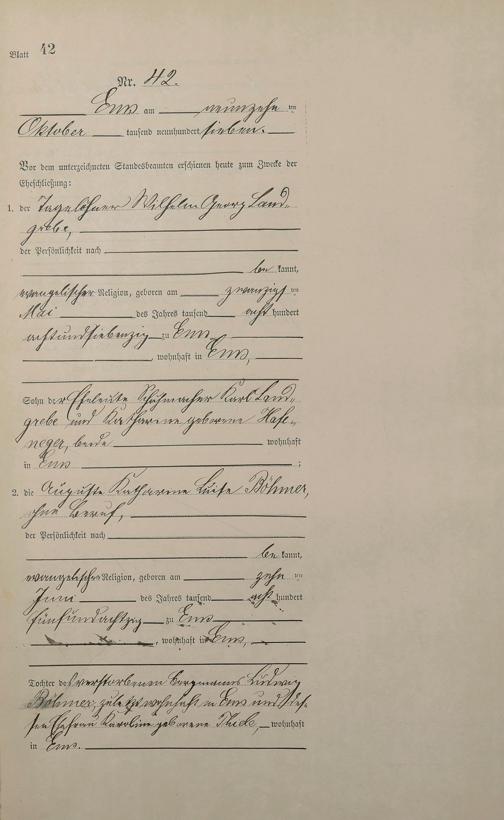 Blatt 42
Nr. 42.
Ems am neunzehnten
Oktober tausend neunhundert sieben.
Vor dem unterzeichneten Standesbeamten erschienen heute zum Zwecke der
Eheschließung:
1. der Tagelöhner Wilhelm Georg Land-
grebe,
der Persönlichkeit nach
bekannt,
evangelischer Religion, geboren am zwanzigsten
Mai des Jahres tausend acht hundert
achtundsiebenzig zu Ems
, wohnhaft in Ems,
Sohn der Eheleute Schuhmacher Karl Land-
grebe und Katharine geborene
beide wohnhaft
in Ems ;
2. die Auguste Katharine Luise Böhmer,
ohne Beruf,
der Persönlichkeit nach
bekannt,
evangelischer Religion, geboren am zehnten
Juni des Jahres tausend acht hundert
fünfundachtzig zu Ems
, wohnhaft in Ems,
Tochter des verstorbenen Bergmanns Ludwig
Böhmer, zuletzt wohnhaft in Ems und des-
sen Ehefrau Karoline geborene wohnhaft
in Ems.